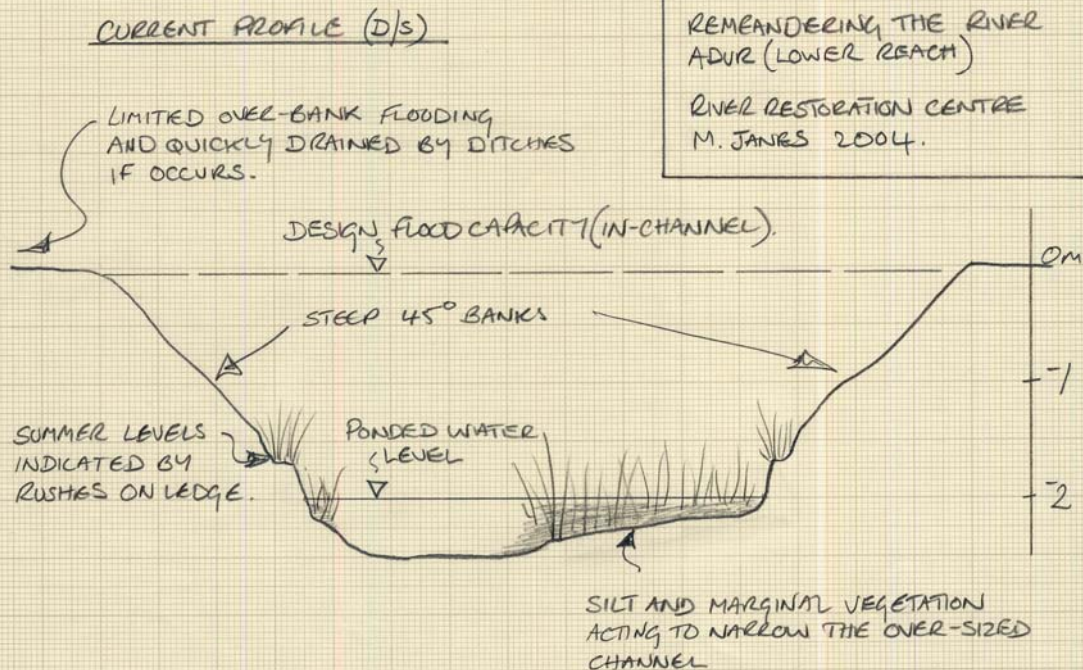 CURRENT PROFILE (D/S)
REMEANDERING THE RIVER
ADUR (LOWER REACH)
RIVER RESTORATION CENTRE
M. JANES 2004.
LIMITED OVER-BANK FLOODING
AND QUICKLY DRAINED BY DITCHES
IF OCCURS.
DESIGN FLOOD CAPACITY (IN-CHANNEL).
0m
STEEP 45° BANKS
-1
SUMMER LEVELS
INDICATED BY
RUSHES ON LEDGE.
PONDED WATER
LEVEL
-2
SILT AND MARGINAL VEGETATION
ACTING TO NARROW THE OVER-SIZED
CHANNEL